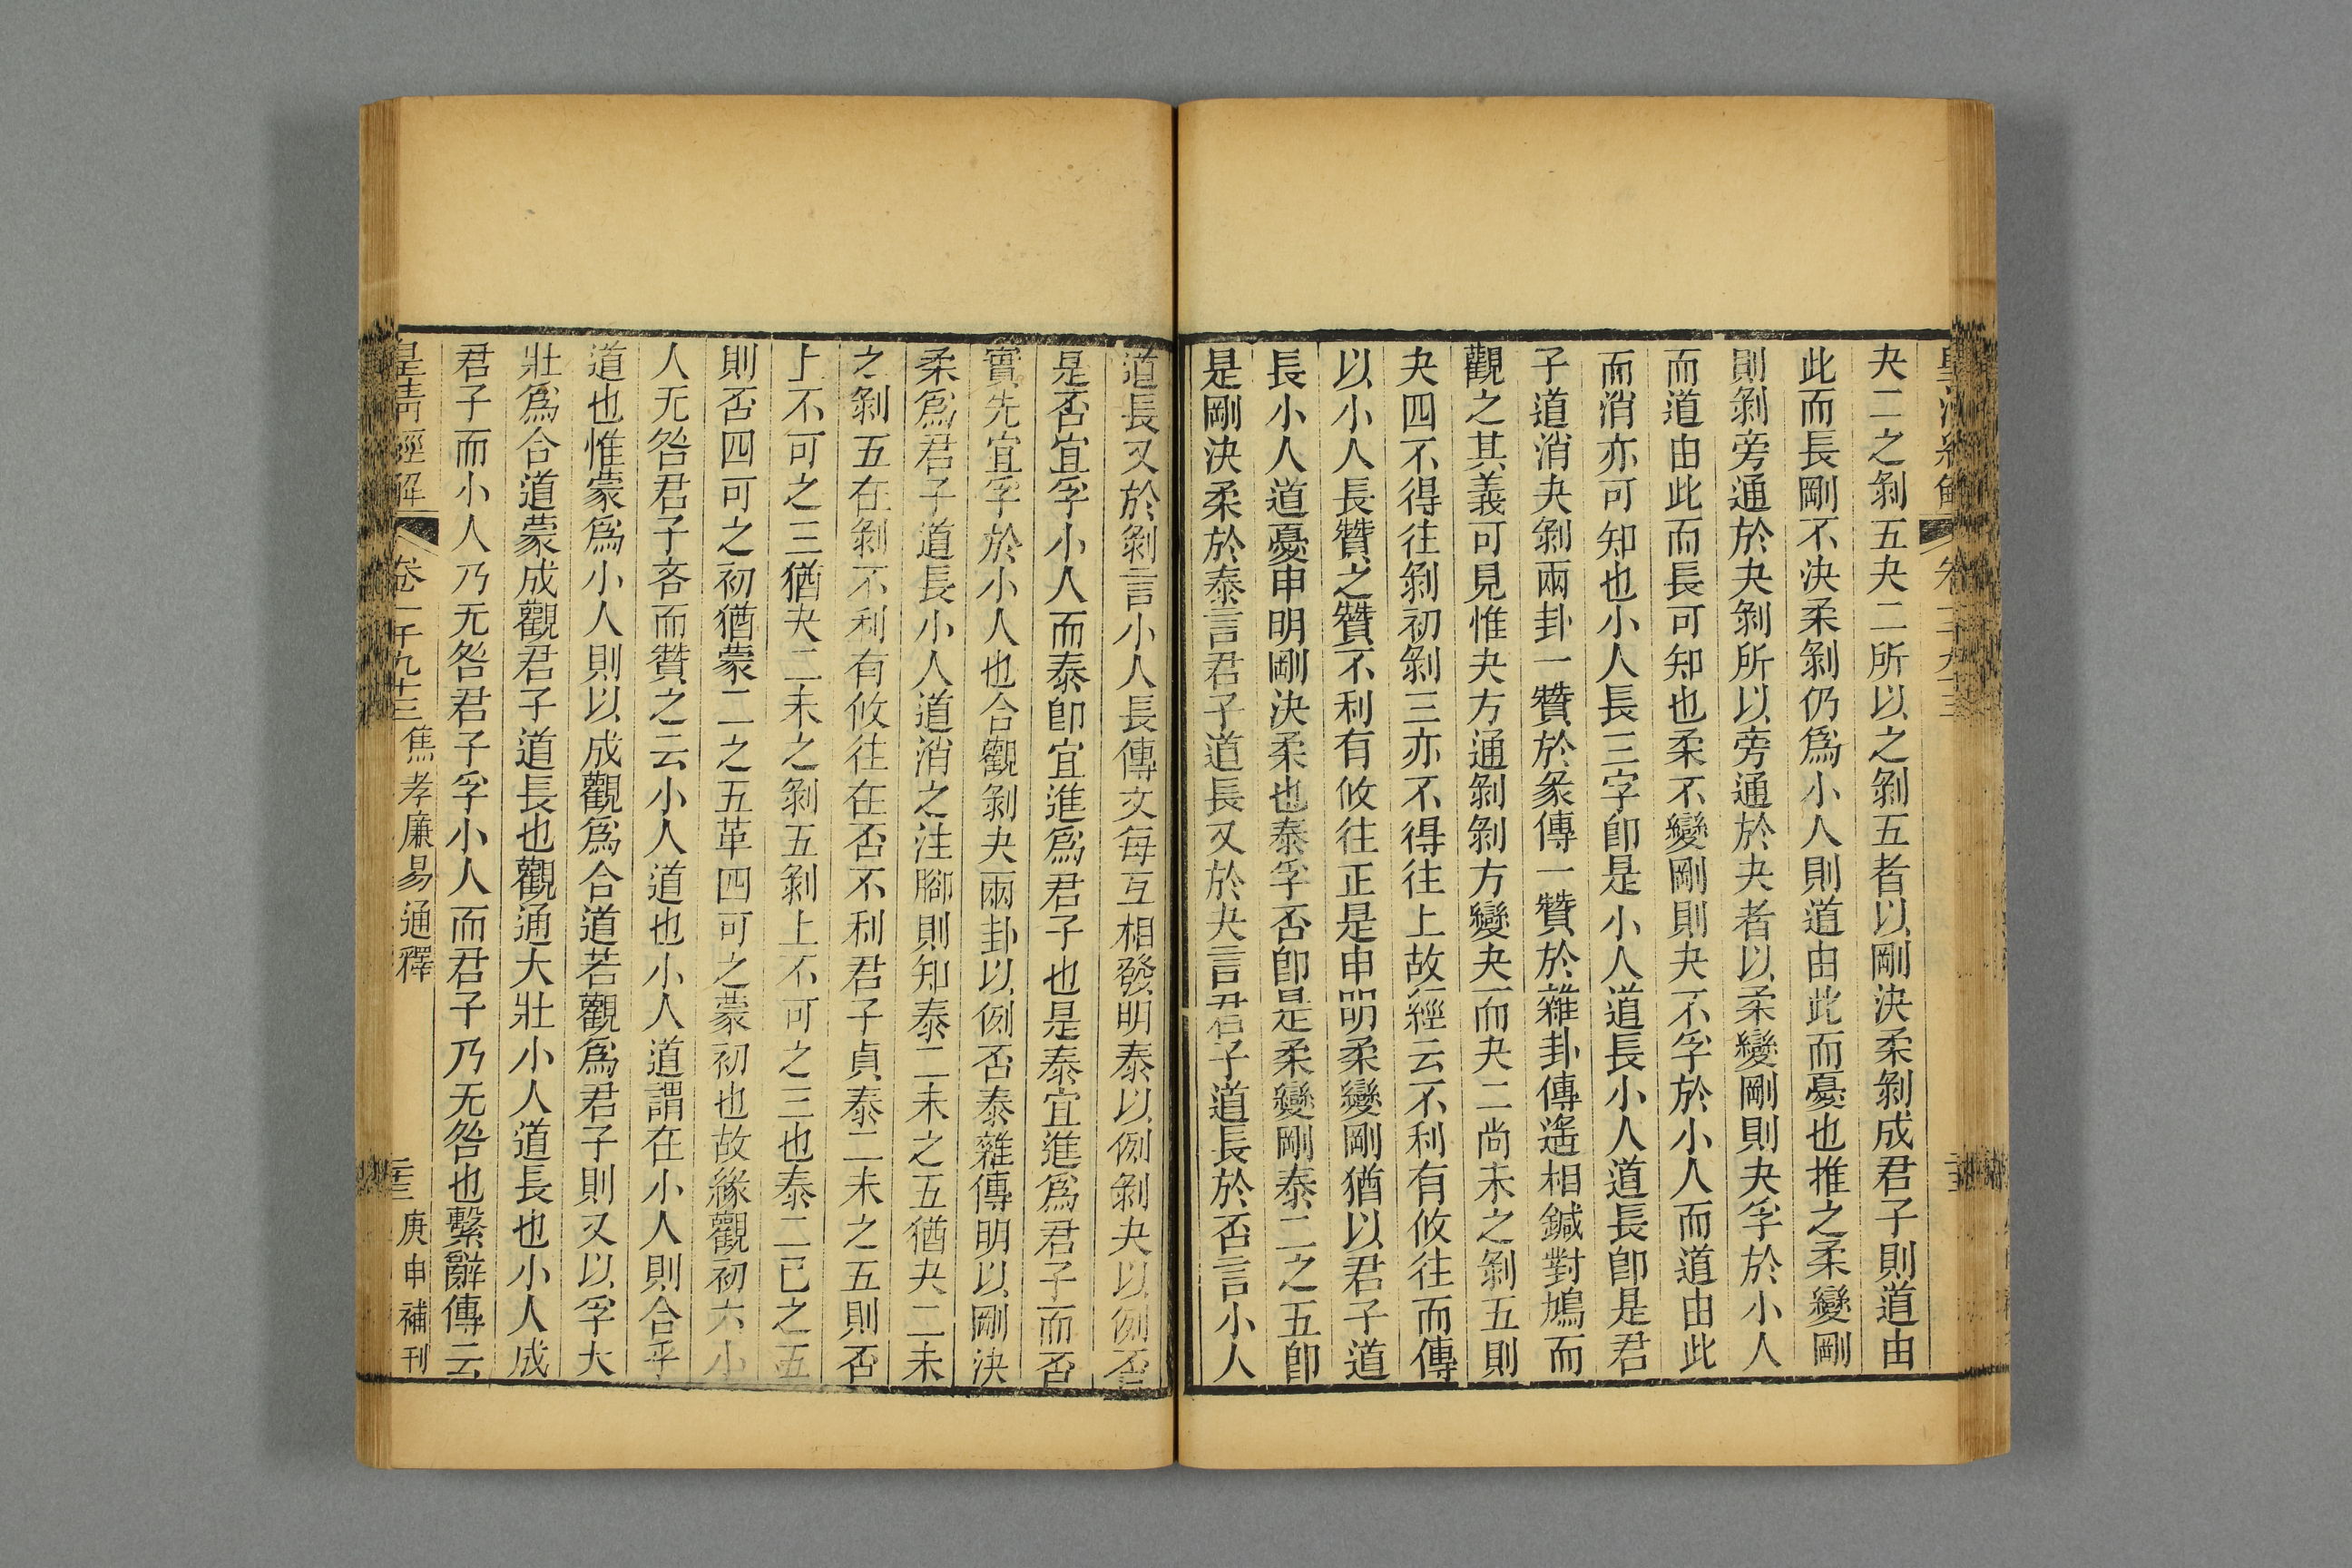 夬二之剝五夬二所以之剝五者以剛決柔剝成君子則道由
此而長剛不決柔剝仍爲小人則道由此而憂也推之柔變剛
則剝旁通於夬剝所以旁通於夬者以柔變剛則夬孚於小人
而道由此而長可知也柔不變剛則夬不孚於小人而道由此
而消亦可知也小人長三字卽是小人道長小人道長卽是君
子道消夬剝兩卦一贊於彖傳一贊於雜卦傳遙相鍼對鳩而
觀之其義可見惟夬方通剝剝方變夬而夬二尚未之剝五則
夬四不得往剝初剝三亦不得往上故經云不利有攸往而傳
以小人長贊之贊不利有攸往正是申明柔變剛猶以君子道
長小人道憂申明剛決柔也泰孚否卽是柔變剛泰二之五卽
是剛決柔於泰言君子道長又於夬言君子道長於否言小人
道長又於剝言小人長傳文每互相發明泰以例剝夬以例否
是否宜孚小人而泰卽宜進爲君子也是泰宜進爲君子而否
實先宜孚於小人也合觀剝夬兩卦以例否泰雜傳明以剛決
柔爲君子道長小人道消之注腳則知泰二未之五猶夬二未
之剝五在剝不利有攸往在否不利君子貞泰二未之五則否
上不可之三猶夬二未之剝五剝上不可之三也泰二已之五
則否四可之初猶蒙二之五革四可之蒙初也故緣觀初六小
人无咎君子吝而贊之云小人道也小人道謂在小人則合乎
道也惟蒙爲小人則以成觀爲合道若觀爲君子則又以孚大
壯爲合道蒙成觀君子道長也觀通大壯小人道長也小人成
君子而小人乃无咎君子孚小人而君子乃无咎也繫辭傳云
皇清經解 卷一千九十三 焦孝廉易通釋 二十三 庚申補刊